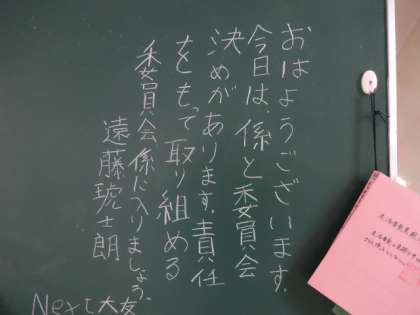 おはようございます。
今日は、係と委員会
決めがあります。責任
をもって取り組める
委員会、係に入りましょう。
遠藤琥士朗
Next 大友